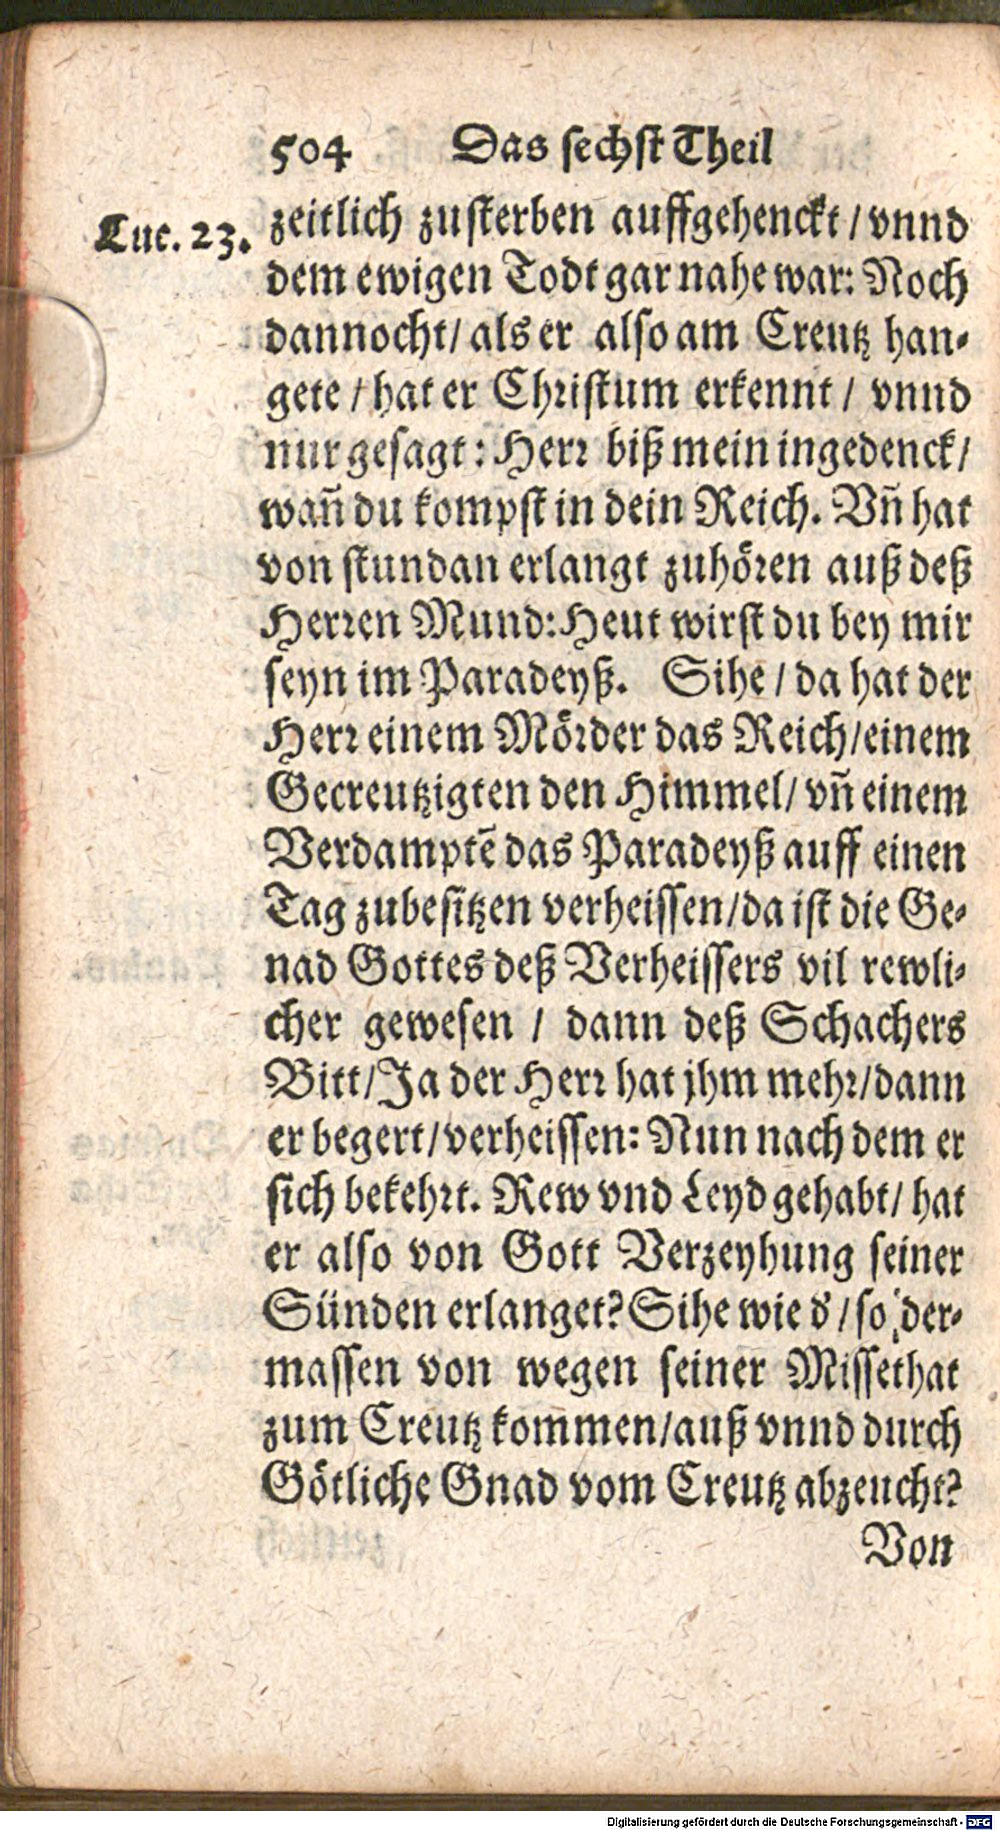 504 Das sechst Theil
Luc. 23.
zeitlich zusterben auffgehenckt / vnnd
dem ewigen Todt gar nahe war: Noch
dannocht / als er also am Creutz han-
gete / hat er Christum erkennt / vnnd
nur gesagt: Herr biß mein ingedenck /
wañ du kompst in dein Reich. Vñ hat
von stundan erlangt zuhören auß deß
Herren Mund: Heut wirst du bey mir
seyn im Paradeyß. Sihe / da hat der
Herr einem Mörder das Reich / einem
Gecreutzigten den Himmel / vñ einem
Verdamptẽ das Paradeyß auff einen
Tag zubesitzen verheissen / da ist die Ge-
nad Gottes deß Verheissers vil rewli-
cher gewesen / dann deß Schachers
Bitt / Ja der Herr hat jhm mehr / dann
er begert / verheissen: Nun nach dem er
sich bekehrt. Rew vnd Leyd gehabt / hat
er also von Gott Verzeyhung seiner
Sünden erlanget? Sihe wie d' / so der-
massen von wegen seiner Missethat
zum Creutz kommen / auß vnnd durch
Götliche Gnad vom Creutz abzeucht?
Von
Digitalisierung gefördert durch die Deutsche Forschungsgemeinschaft - DFG